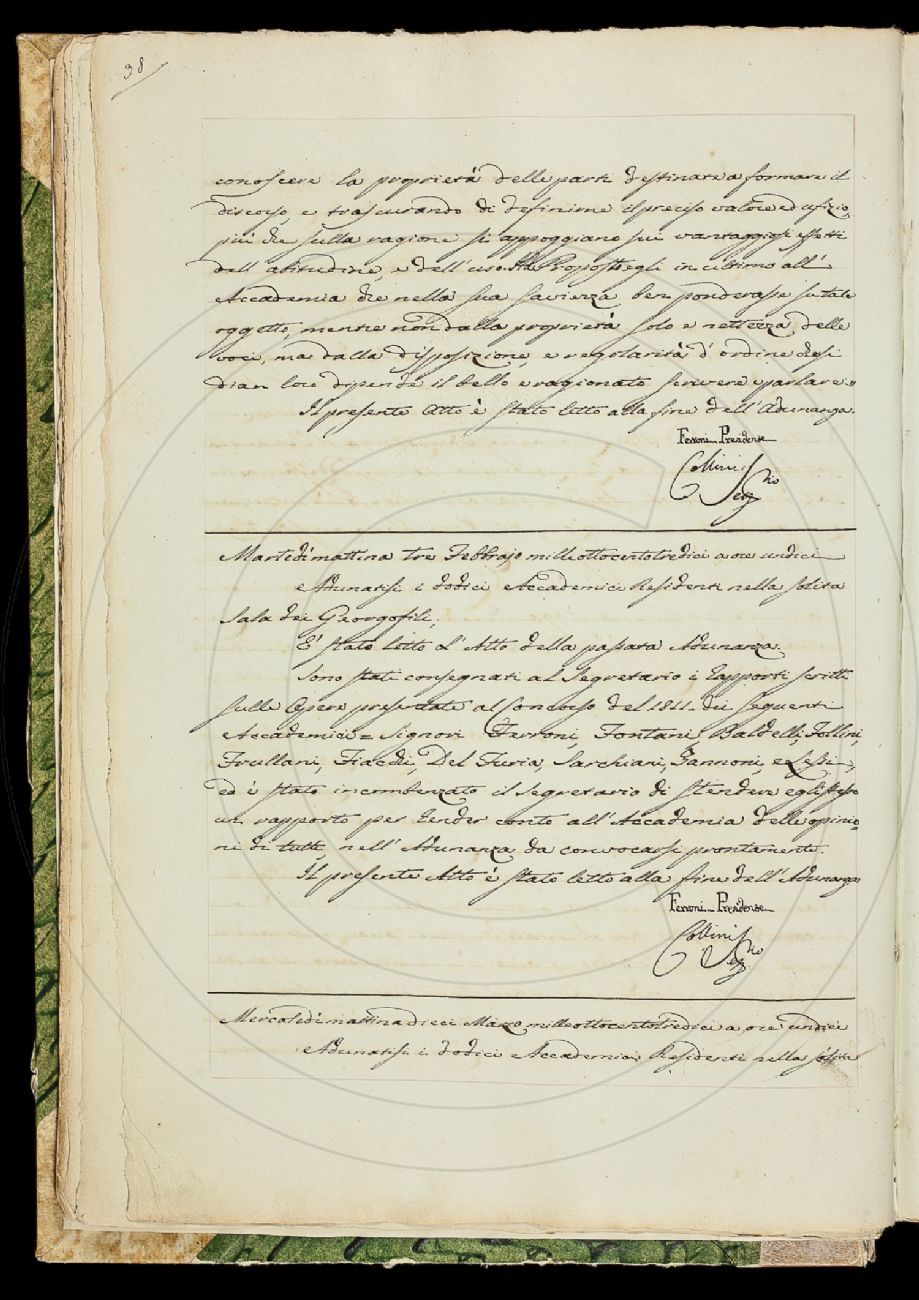 38
conoscere la proprietà delle parti destinate a formare il
discorso, e trascurando di definirne il preciso valore ed ufizio,
più che sulla ragione si appoggiano sui vantaggiosi effetti
dell'abitudine, e dell'uso. Propose egli in ultimo all'
Accademia che nella sua saviezza ben ponderasse su tale
oggetto, mentre non dalla proprietà solo e nettezza delle
voci, ma dalla disposizione, e regolarità d'ordine che si
dian loro dipende il bello e ragionato scrivere e parlare.
Il presente Atto è stato letto alla fine dell'Adunanza.
Ferroni Presidente
Collini
Seg.rio
Martedì mattina tre Febbrajo milleottocentotredici a ore undici
Adunatisi i dodici Accademici Residenti nella solita
Sala dei Georgofili,
E' stato letto l'Atto della passata Adunanza.
Sono stati consegnati al Segretario i Rapporti scritti
sulle Opere presentate al Concorso del 1811. dai seguenti
Accademici = Signori Ferroni, Fontani, Baldelli, Follini,
Frullani, Fiacchi, Del Furia, Sarchiani, Zannoni, e Lessi,
ed è stato incombenzato il Segretario di stendere egli stesso
un rapporto per render conto all'Accademia delle opinio=
ni di tutti, nell'Adunanza da convocarsi prontamente.
Il presente Atto è stato letto alla fine dell'Adunanza
Ferroni Presidente
Collini
Seg.rio
Mercoledì mattina dieci Marzo milleottocentotredici a ore undici
Adunatisi i dodici Accademici Residenti nella solita